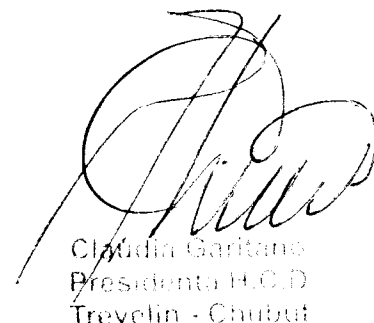 Claudia Garitano
Presidenta H.C.D
Trevelin - Chubut